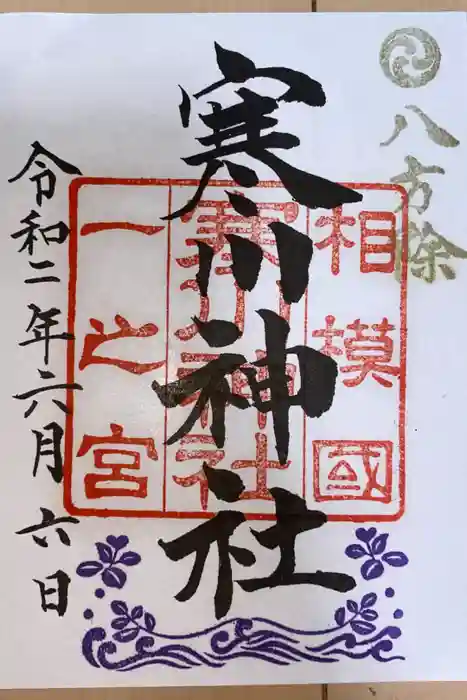 八方除
寒川神社
相模國
寒川神社
一之宮
令和二年六月六日